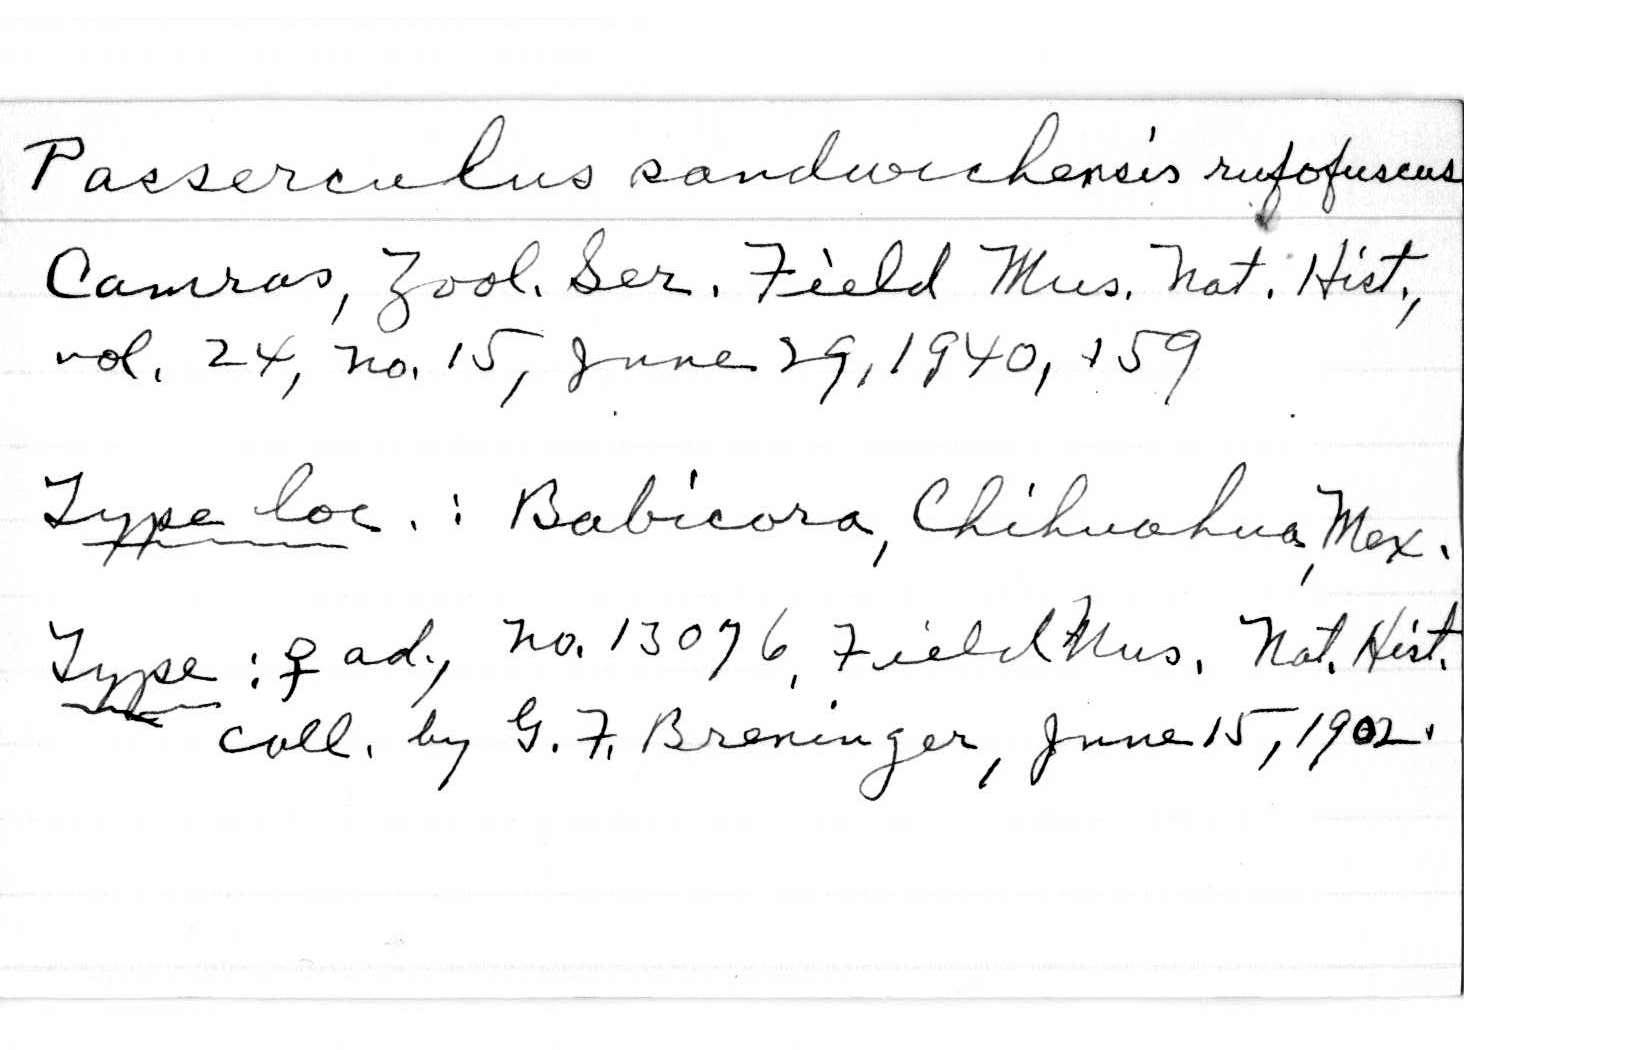 Passerculus sandwichensis rufofuscus
Camras, Zool. Ser. Field Mus. Nat. Hist.,
vol. 24, no. 15, June 29, 1940, 159
Type loc. : Babicora, Chihuahua, Mex.
Type : ♀ ad., no. 13076, Field Mus. Nat. Hist.
coll. by G. F. Breninger, June 15, 1902.